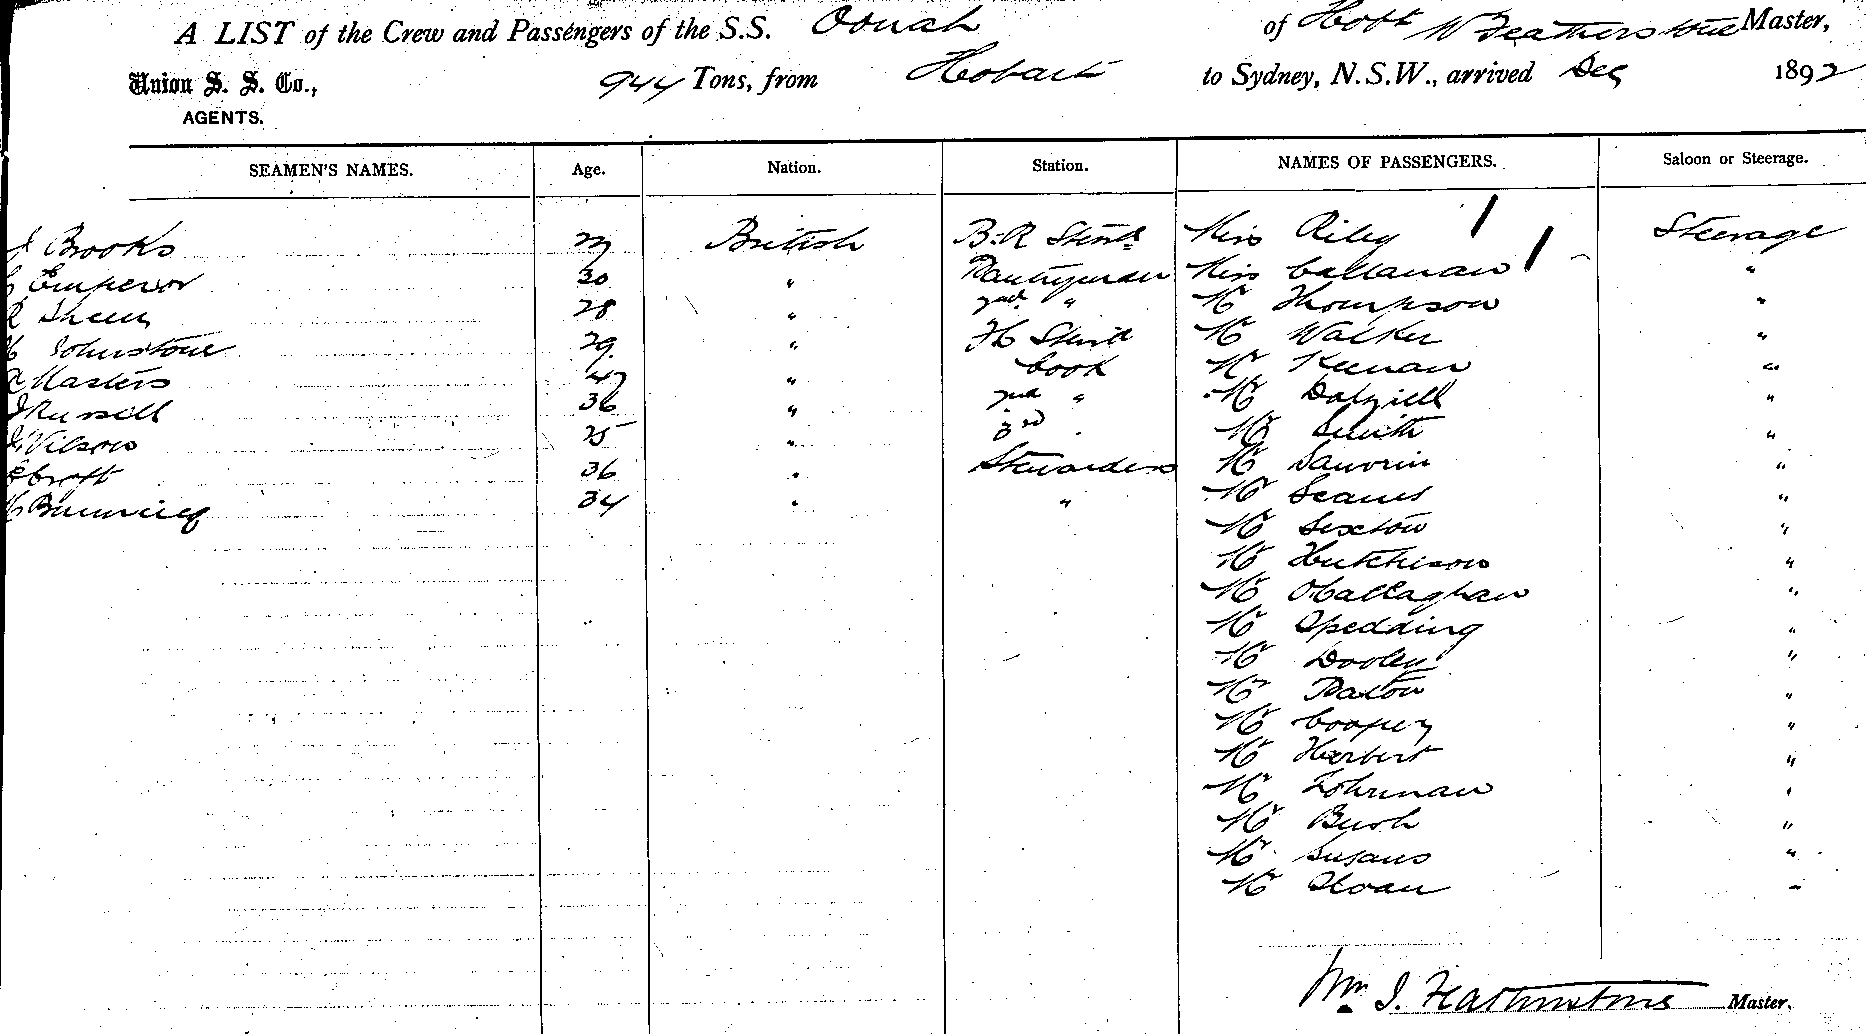 A LIST of the Crew and Passengers of the S.S. Oonah of Hobt W Featherstone Master,
Union S. S. Co., 944 Tons, from Hobart to Sydney, N.S.W., arrived Dec 1892
AGENTS.
SEAMEN'S NAMES. Age. Nation. Station. NAMES OF PASSENGERS. Saloon or Steerage.
J Brooks 23 British B.R Stewd Miss Riley Steerage
Emperor 30 " Pantryman Miss Callanan "
28 " 2nd " Mr Thompson "
Johnstone 29 " Fc Stewd Mr Walker "
Masters 47 " Cook Mr Keenan "
J Russell 36 " 2nd " Mr Dalziell "
Wilson 25 " 3rd Mr Smith "
Croft 36 " Stewardess Mr "
34 " " Mr Seams "
Mr Sexton "
Mr Hutchison "
Mr O'Callaghan "
Mr Spedding "
Mr Dooley "
Mr Paton "
Mr Cooper "
Mr Herbert "
Mr Lohrman "
Mr Bush "
Mr Susans "
Mr Sloan "
Wm J. Featherstone Master.